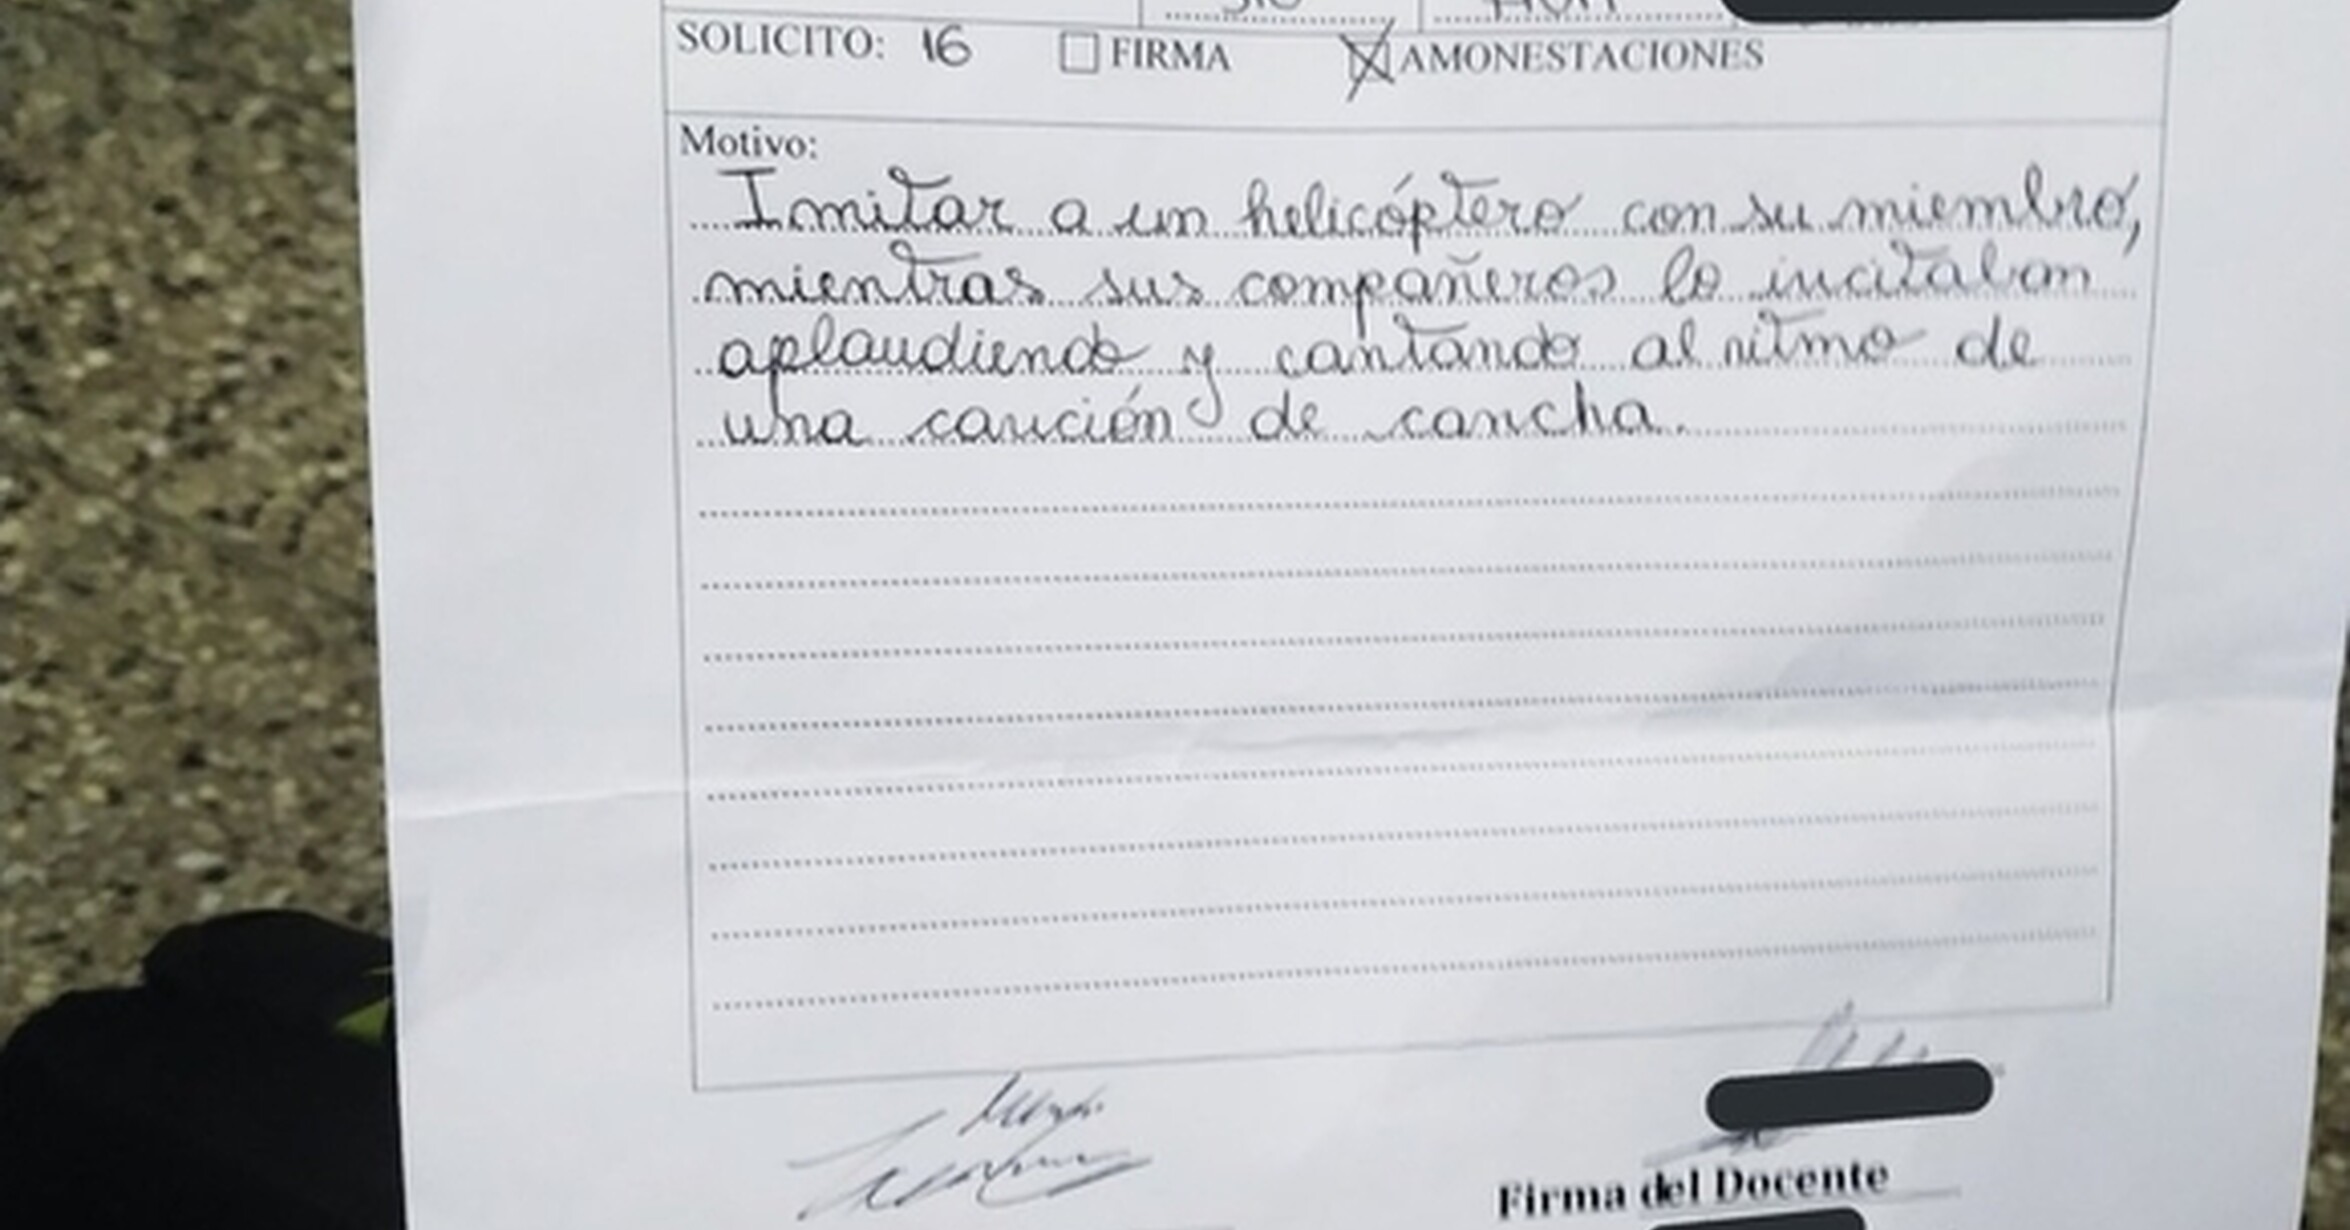 SOLICITO: 16 FIRMA AMONESTACIONES
Motivo:
Imitar a un helicóptero con su miembro,
mientras sus compañeros lo incitaban
aplaudiendo y cantando al ritmo de
una canción de cancha.
Firma del Docente